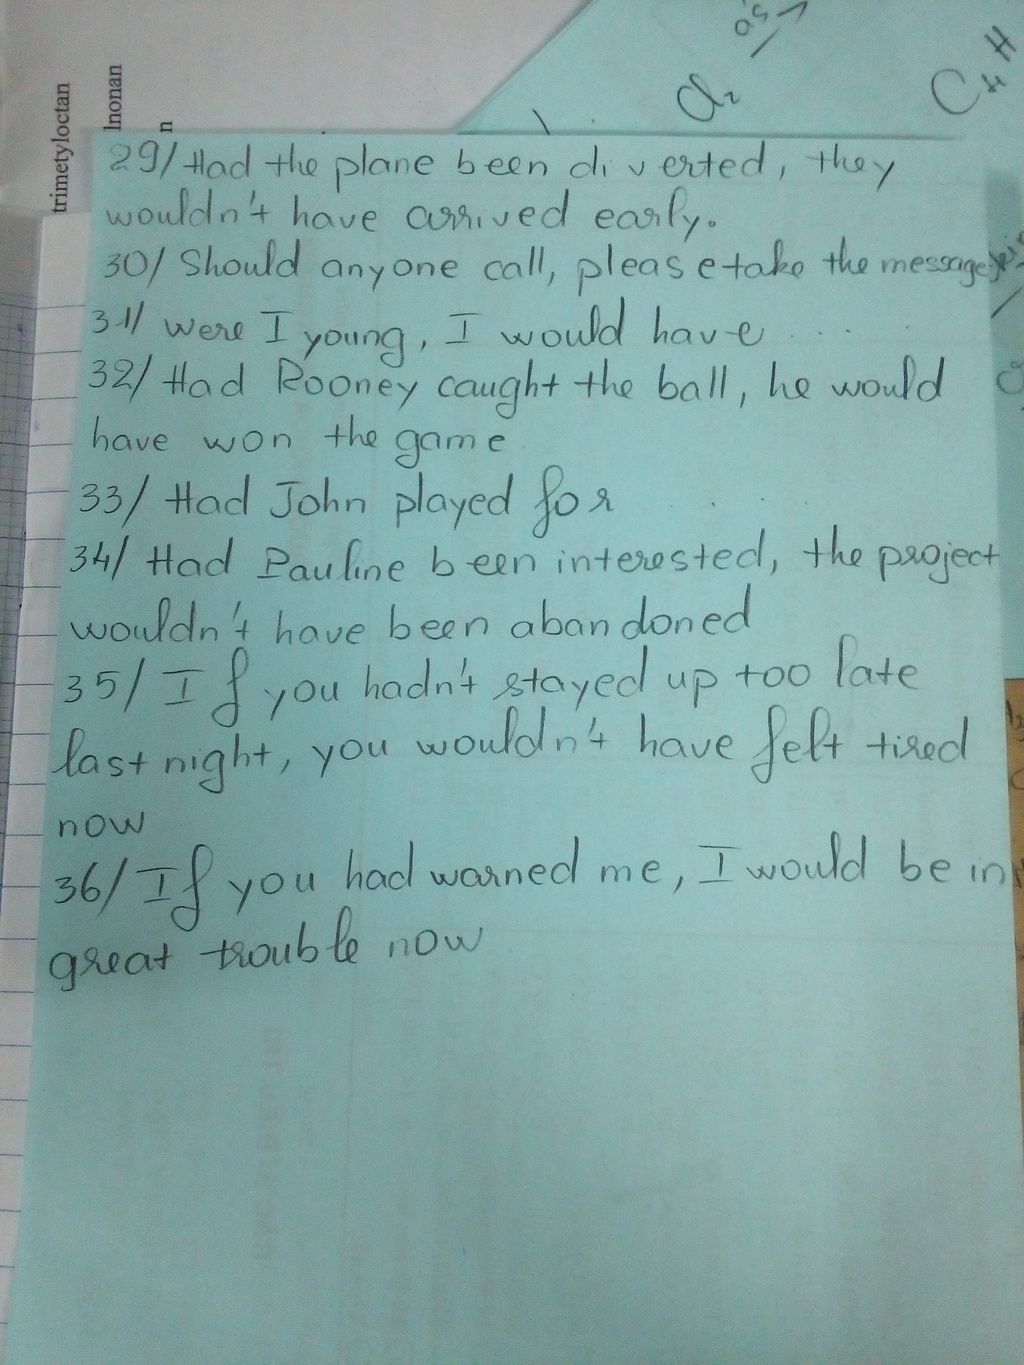 trimetyloctan
lnonan
n
Cl2
as
C4H
29/ Had the plane been diverted, they
wouldn't have arrived early.
30/ Should anyone call, please take the message
31/ were I young, I would have ....
32/ Had Rooney caught the ball, he would
have won the game
33/ Had John played for . . .
34/ Had Pauline been interested, the project
wouldn't have been abandoned
35/ If you hadn't stayed up too late
last night, you wouldn't have felt tired
now
36/ If you had warned me, I would be in
great trouble now